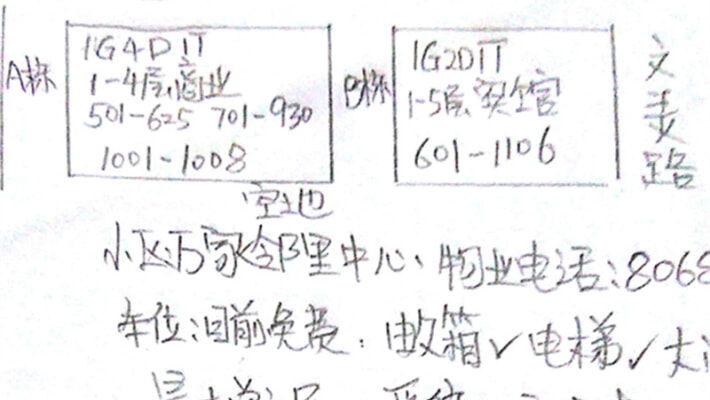 A栋
1G4D1T
1-4层商业
501-625 701-930
1001-1008
B栋
1G2D1T
1-5层
601-1106
文
路
空地
小区:万家邻里中心、物业电话:8068
车位:目前免费. 邮箱✓电梯✓大